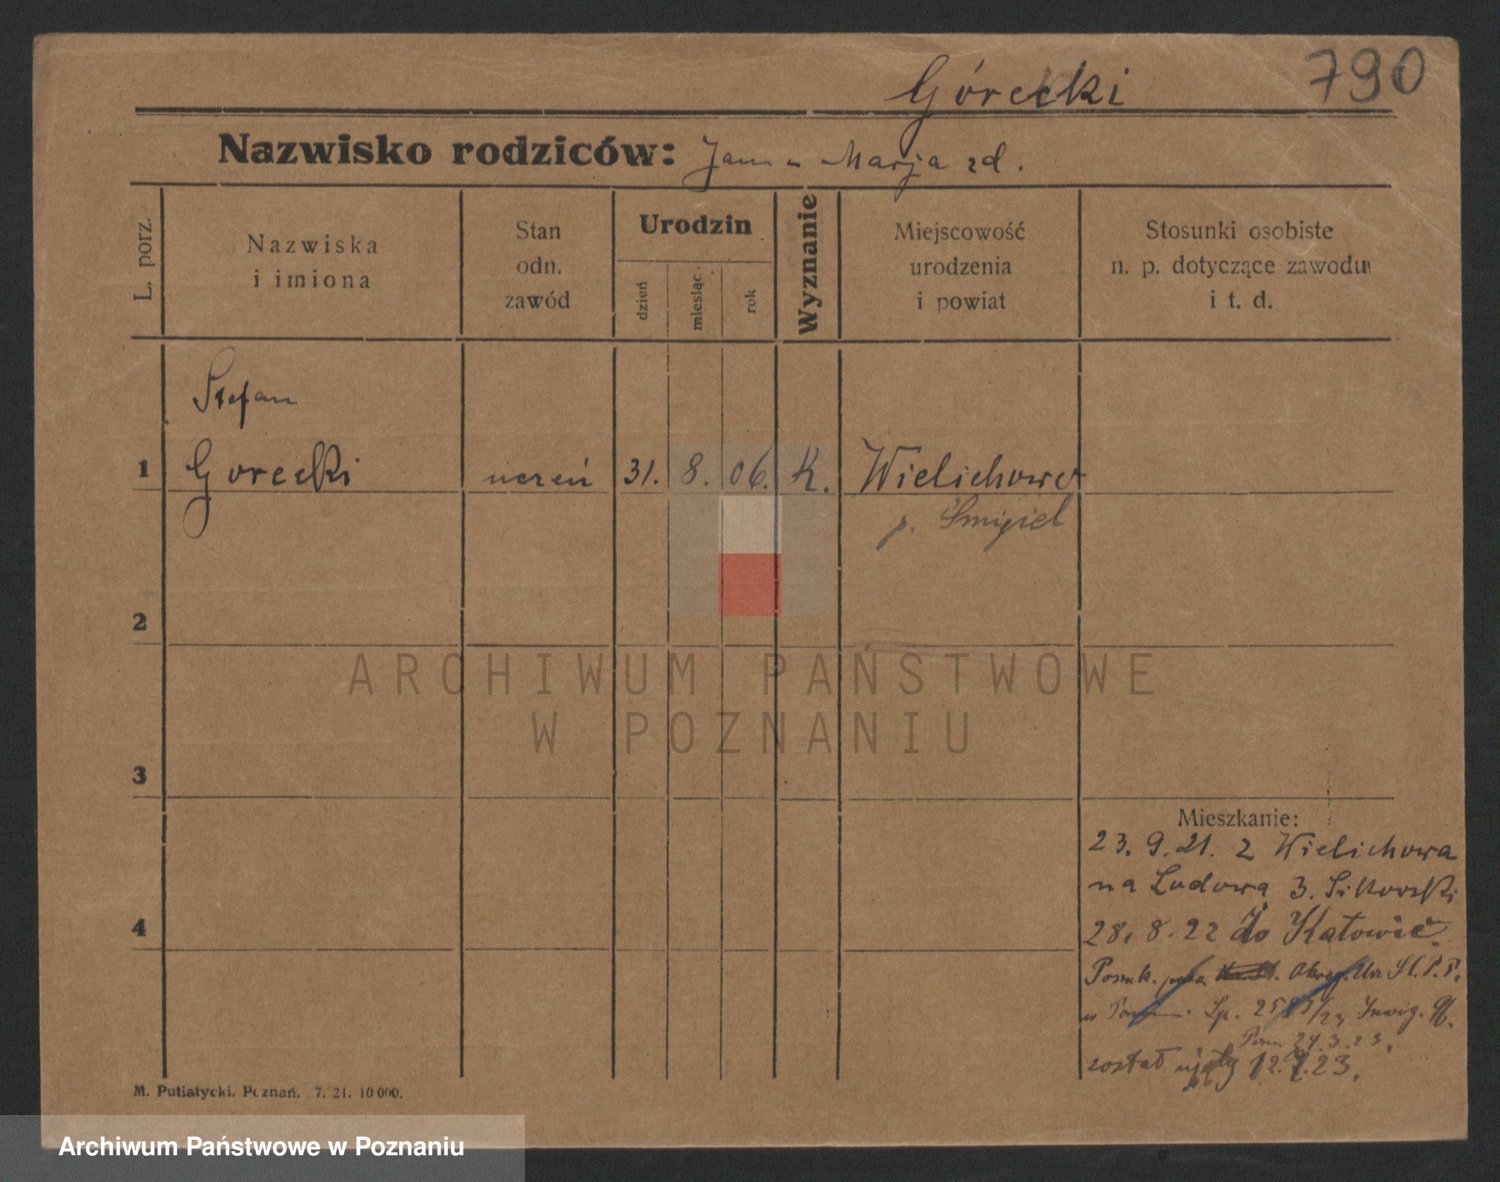 Górecki
790
Nazwisko rodziców: Jan Marja zd.
L. porz.
Nazwiska
i imiona
Stan
odn.
zawód
Urodzin
dzień
miesiąc
rok
Wyznanie
Miejscowość
urodzenia
i powiat
Stosunki osobiste
n. p. dotyczące zawodu
i t. d.
Stefan
1 Gorecki uczeń 31. 8. 06. K. Wielichowo
p. Śmigiel
2
ARCHIWUM PAŃSTWOWE
W POZNANIU
3
Mieszkanie:
23. 9. 21. z Wielichowa
na Ludową 3. Sikorski
4
28. 8. 22 do Katowic.
Poszuk. Okręg. Urz. Śl. P. P.
Lp. 23 Inwig.
24.3.23.
został ujęty 12. 23.
M. Putiatycki. Poznań. 7. 21. 10 000.
Archiwum Państwowe w Poznaniu